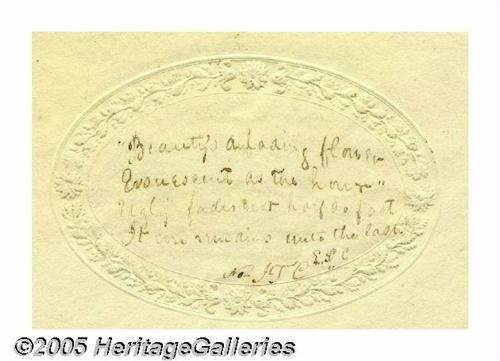 "Beauty's a fading flower
Evanescent as the hour"
Ugly fades not half so fast
It remains unto the last.
E.P.C
No J T C
©2005 HeritageGalleries